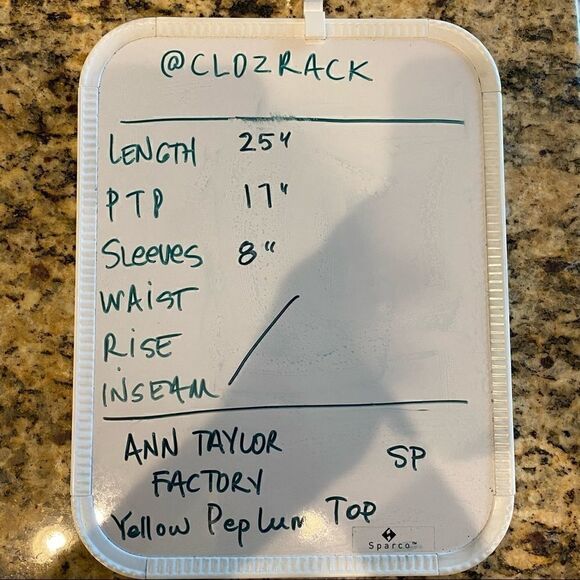 @CLOZRACK
LENGTH 25"
PTP 17"
SLEEVES 8"
WAIST
RISE
INSEAM
ANN TAYLOR
FACTORY SP
Yellow Peplum Top
Sparco™